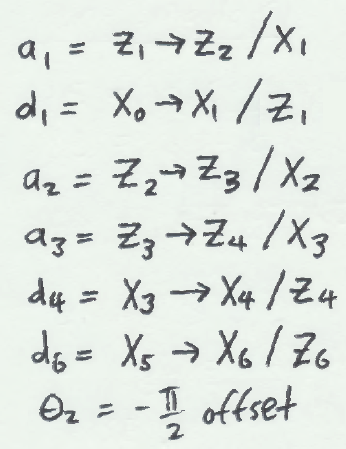 a₁ = Z₁ → Z₂ / X₁
d₁ = X₀ → X₁ / Z₁
a₂ = Z₂ → Z₃ / X₂
a₃ = Z₃ → Z₄ / X₃
d₄ = X₃ → X₄ / Z₄
d₆ = X₅ → X₆ / Z₆
θ₂ = -π/2 offset